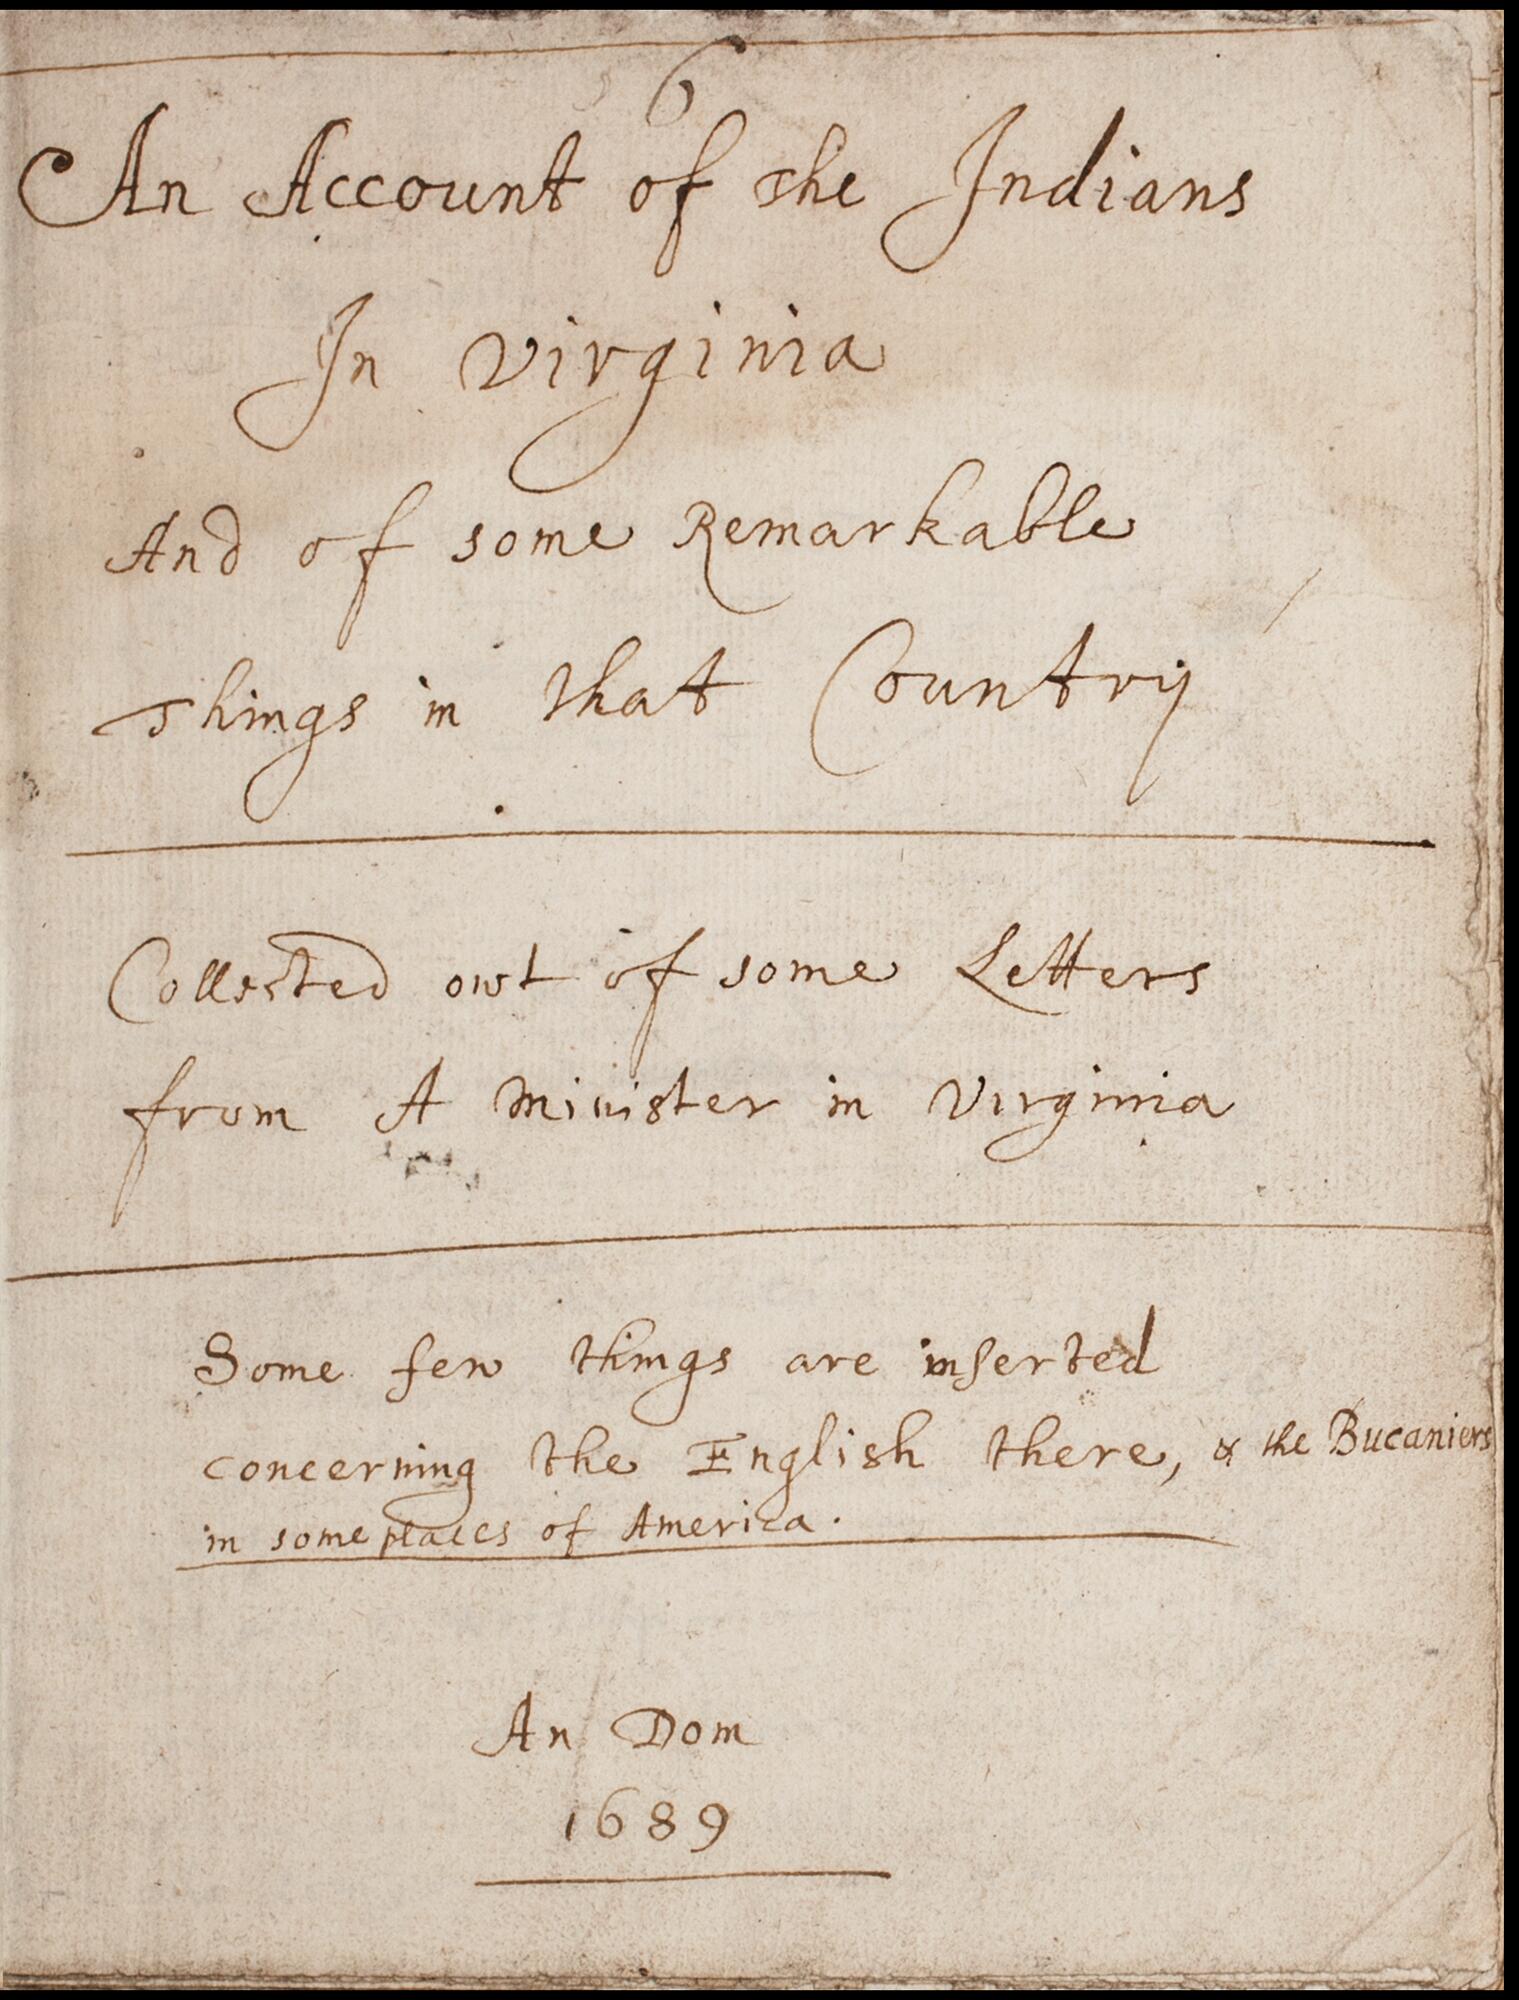 6
An Account of the Indians
In Virginia
And of some Remarkable
Things in that Country
Collected owt of some Letters
from A Minister in Virginia
Some few things are inserted
concerning the English there, & the Bucaniers
in some places of America.
An Dom
1689